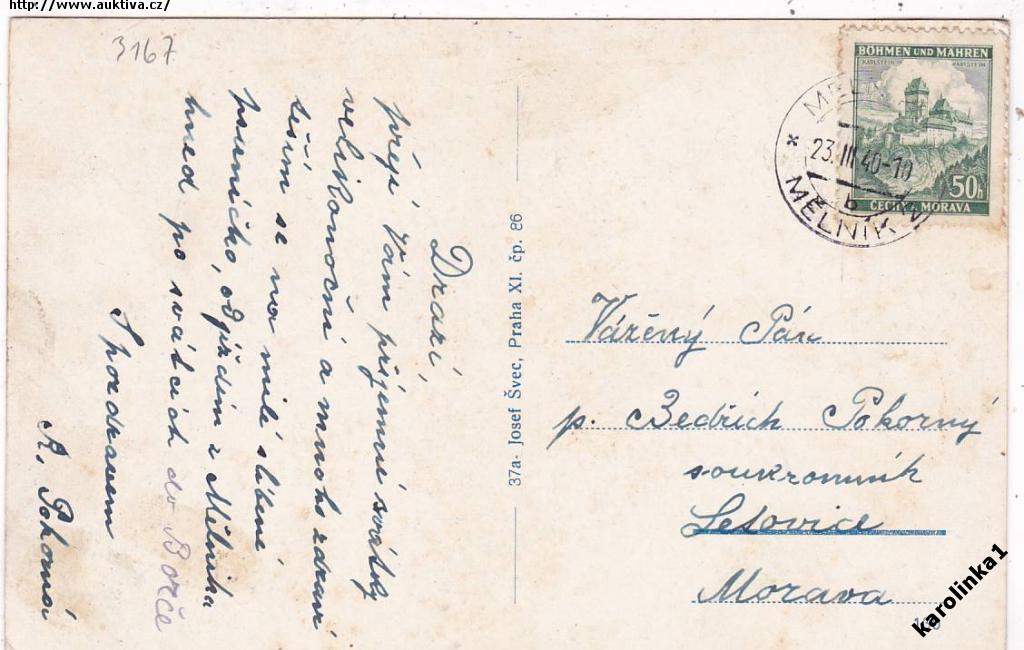 http://www.auktiva.cz/
3167
Drazí,
přeji Vám příjemné svátky
velikonoční a mnoho zdraví
těším se na milé slíbené
psaníčko, odjíždím z Mělníka
hned po svátcích do Borče
S pozdravem
A. Pokorná
37a- Josef Švec, Praha XI. čp. 86
BÖHMEN UND MÄHREN
KARLSTEIN KARLŠTEJN
50h
ČECHY A MORAVA
MELNIK
* 23.III.40-10
b
MĚLNÍK
Vážený Pán
p. Bedřich Pokorný
soukromník
Letovice
Morava
karolinka1